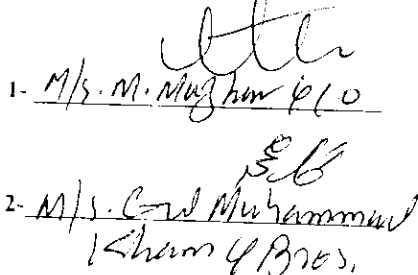 1- M/s. M. Mazhar & Co
2- M/s. Gul Muhammad
Khan & Bros.